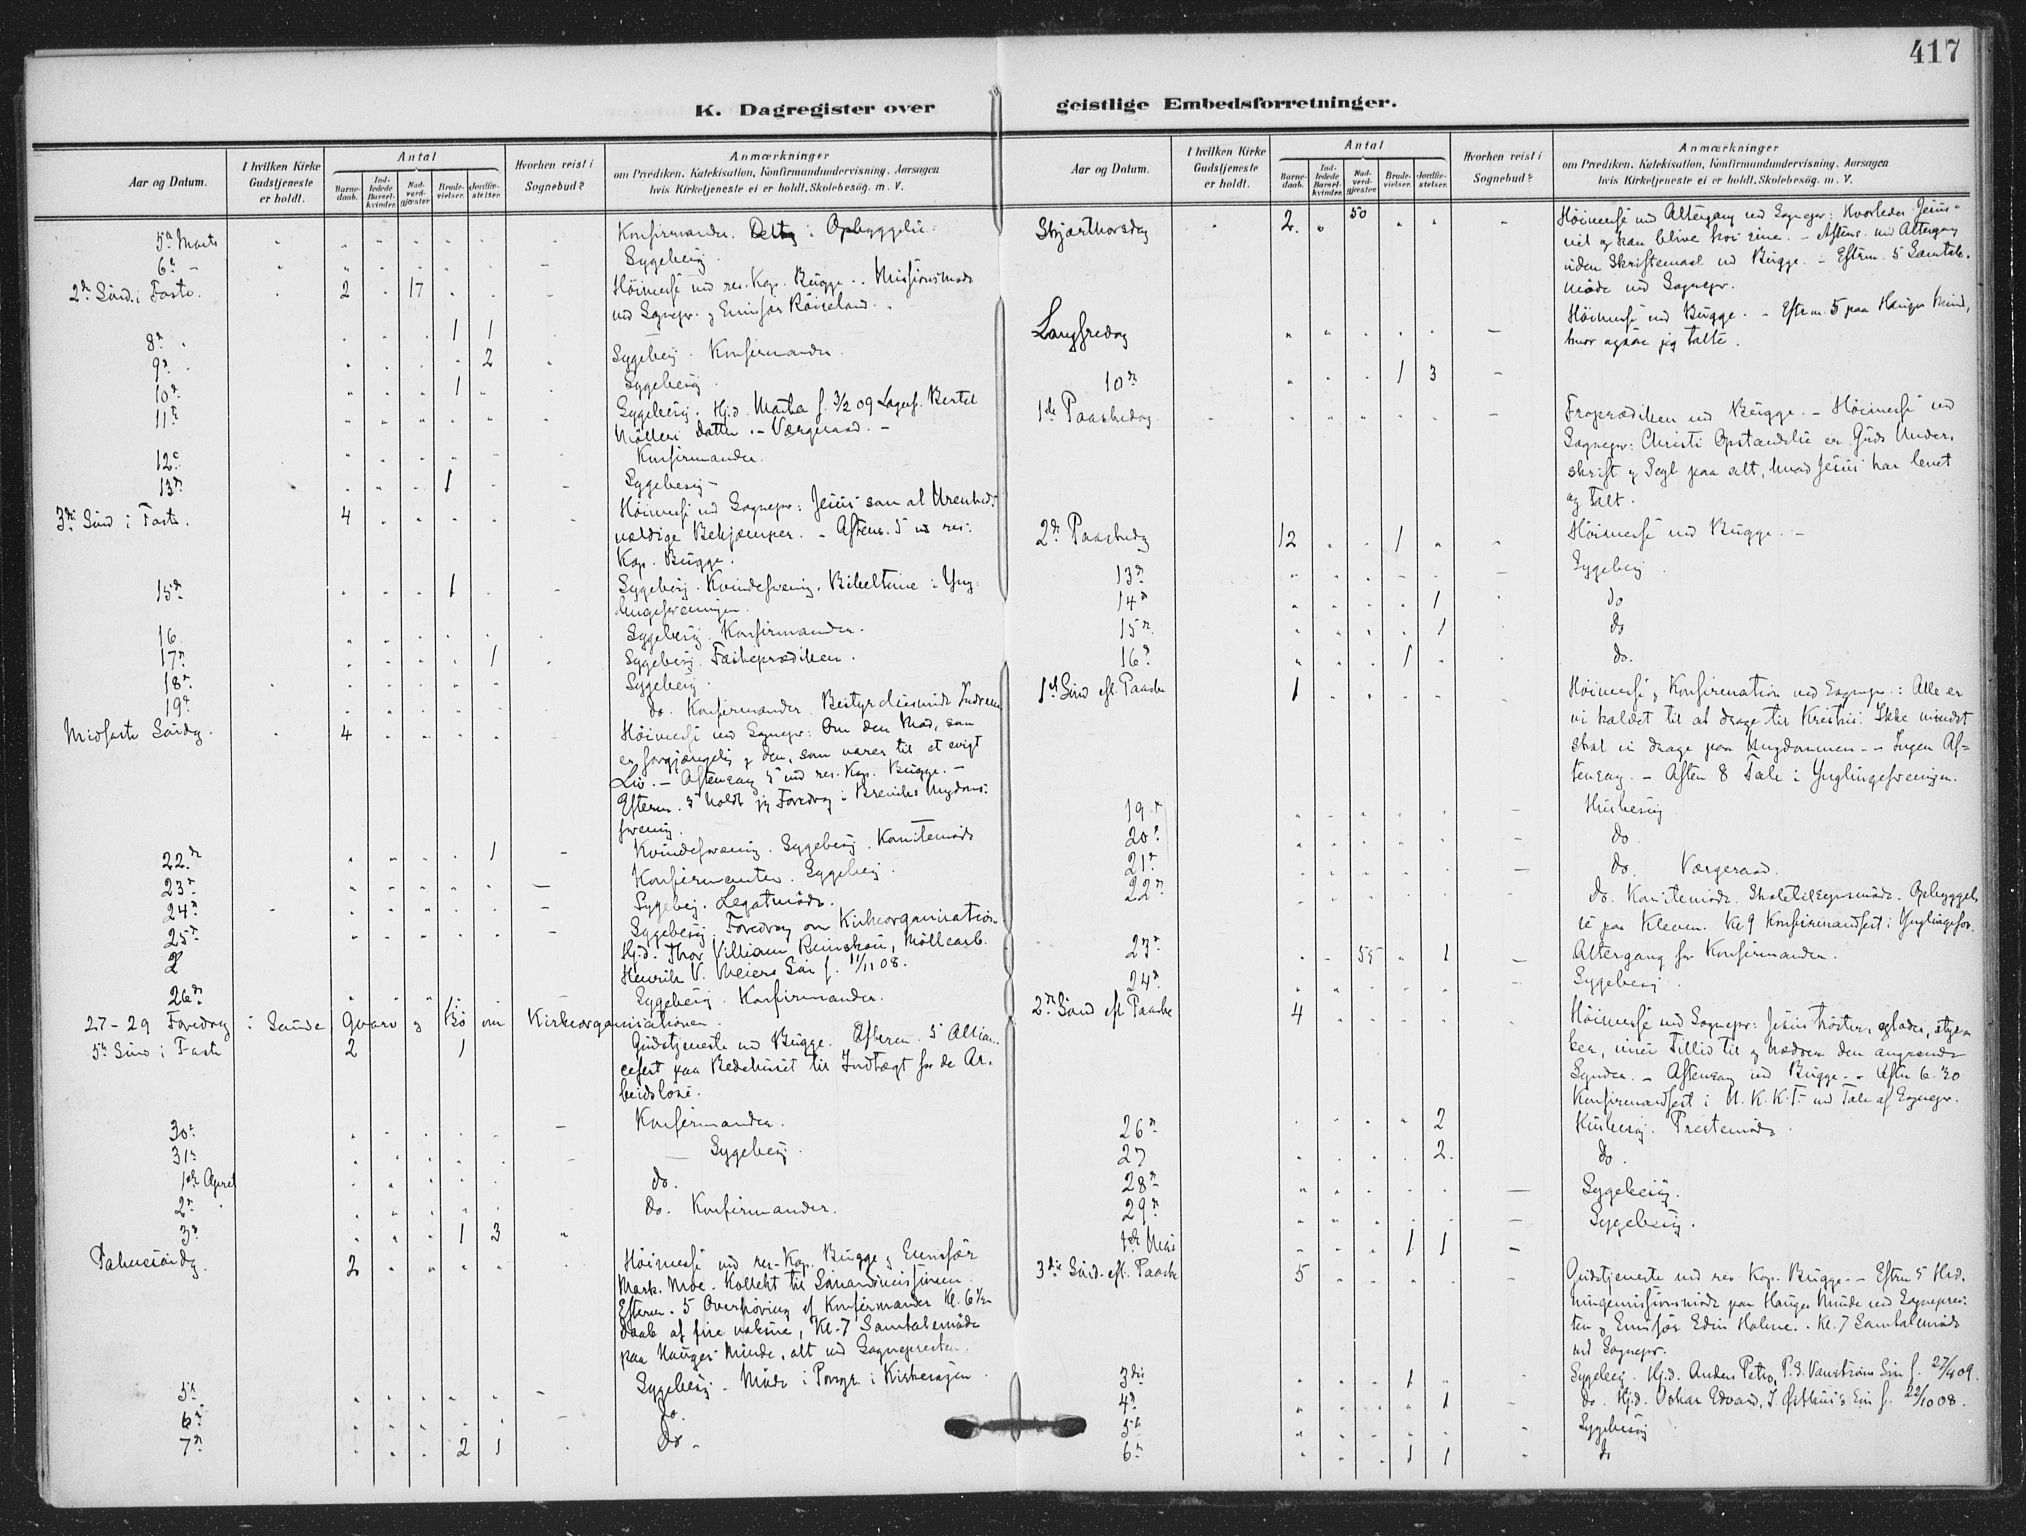 417
K. Dagregister over geistlige Embedsforretninger.
Aar og Datum.
I hvilken Kirke Gudstjeneste er holdt.
Antal
Barnedaab.
Indledede Barselkvinder.
Nadverdgjæster
Brudevielser.
Jordfæstelser.
Hvorhen reist i Sognebud?
Anmærkninger
om Prædiken, Katekisation, Konfirmandundervisning, Aarsagen
hvis Kirketjeneste ei er holdt, Skolebesøg. m. V.
5te Marts Konfirmander. Opbyggelse.
6te Sygebesøg.
2den Sønd. i Faste. 2 17 Høimesse ved res. Kap. Bugge. Missionsmøde
ved Sognepr. og Emissær
8de 1 1
Sygebesøg. Konfirmander.
9de 2
Sygebesøg.
10de 1
11te Sygebesøg. Hj.d. Marta f. 3/2 09 Bertel
Møllers datter. - Værgeraad. -
12te Konfirmander.
13de 1 Sygebesøg -
3die Sønd i Faste. 4 Høimesse ved Sognepr: Jesus som al Urenheds
vældige Bekjæmper. - Aftens. 5 ved res:
Kap. Bugge.
15de 1 Sygebesøg. Kvindeforening. Bibeltime i Yng-
lingeforeningen.
16. Sygebesøg. Konfirmander.
17de 1 Sygebesøg. Fasteprædiken.
18de Sygebesøg.
19de do. Konfirmander. Bestyrelsesmøde Indrem
Midfaste Søndag. 4 Høimesse ved Sognepr: Om den Mad, som
er forgjængelig og den, som varer til et evigt
Liv. - Aftensang 5 ved res. Kap. Bugge. -
Efterm. 3 holdt jeg Foredrag i Breviks Ungdoms-
forening.
22de 1 Kvindeforening. Sygebesøg. Komitemøde
23de Konfirmanter. Sygebesøg.
24de Sygebesøg. Legatmøde.
25de Sygebesøg. Foredrag om Kirkeorganisation
Hj.d. Thor Villiam Møllearb.
Henrik V. Meiers Søn f. 11/11 08.
26de Sygebesøg. Konfirmander.
27-29 Foredrag i Saude Gvarv og Bø om Kirkeorganisationen.
5te Sønd i Faste 2 1 Gudstjeneste ved Bugge. Efterm. 5 Allian-
cefest paa Bedehuset til Indtægt for de Ar-
beidsløse.
30te Konfirmander.
31te Sygebesøg.
1ste April do.
2den Do. Konfirmander.
3die 1 3
Palmesøndag. 2 Høimesse ved res. Kap. Bugge og Emissær
Mark. Moe. Kollekt til Santalmissionen
Efterm. 5 Overhøring af Konfirmander Kl. 6 1/2
Daab af fire voksne, Kl. 7 Samtalemøde
paa Hauges Minde, alt ved Sognepresten.
5te Sygebesøg. Møde i Porsgr. i Kirkesagen.
6te do.
7de 2 1 Do -
Skjærthorsdag 2 50 Høimesse med Altergang ved Sognepr: Hvorledes Jesus
vil og kan blive hos sine. - Aftens. med Altergang
uden Skriftemaal ved Bugge. - Efterm. 5 Samtale-
møde ved Sognepr.
Langfredag Høimesse ved Bugge. - Efterm. 5 paa Hauges Minde,
hvor ogsaa jeg talte.
10de 1 3
1ste Paaskedag Froprædiken ved Bugge. - Høimesse ved
Sognepr: Christi Opstandelse er Guds Under-
skrift og Segl paa alt, hvad Jesus har levet
og talt.
2den Paaskedag 12 1 Høimesse ved Bugge. -
13de Sygebesøg.
14de 1 do
15de 1 do
16de 1 do.
1ste Sønd eft. Paaske 1 Høimesse og Konfirmation ved Sognepr.: Alle er
vi kaldet til at drage til Kristus. Ikke mindst
skal vi drage paa Ungdommen. - Ingen Af-
tensang. - Aften 8 Tale i Ynglingeforeningen.
19de Husbesøg
20de do
21de do. Værgeraad.
22de do. Komitemøde. Skoletilsynsmøde. Opbyggel-
se paa Kleven. Kl 9 Konfirmandfest i Ynglingefor.
23de 55 1 Altergang for Konfirmander.
24de Sygebesøg.
2den Sønd eft Paaske 4 Høimesse ved Sognepr: Jesus trøster, glæder, styr-
ker, viser Tillid til og den angrende
Synder. - Aftensang ved Bugge. - Aften 6.30
Konfirmandfest i U.K.K.F. med Tale af Sognepr.
26de 2 Husbesøg. Prestemøde.
27 2 Do.
28de Sygebesøg.
29de Sygebesøg.
1ste Mai 1 1
3die Sønd. eft. Paaske 5 Gudstjeneste ved res Kap. Bugge. - Efterm 5 Hed-
ningemissionsmøde paa Hauges Minde ved Sognepres-
ten og Emissær Edin Holme. Kl. 7 Samtalemøde
ved Sognepr.
3die 1 Sygebesøg. Hj.d. Anders Petro, P.S. Søn f. 27/4 09.
4de 1 do. Hj.d. Oskar Edvard, J. Søn f. 22/10 08.
5te Sygebesøg
6te 1 1 do